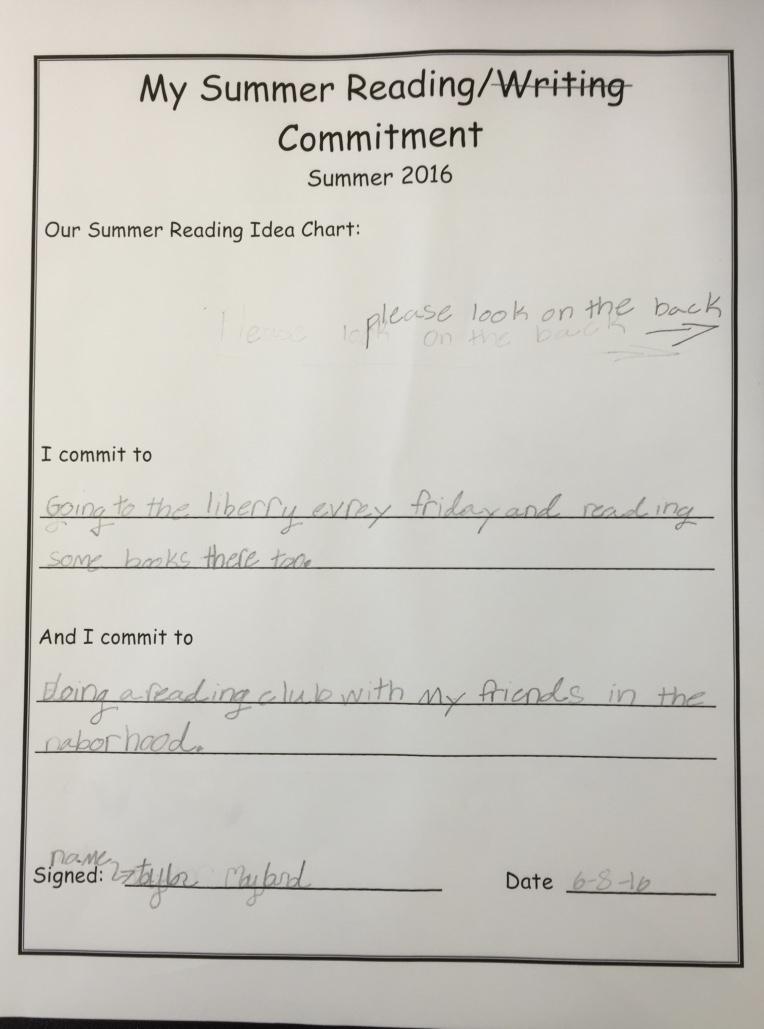 My Summer Reading/Writing
Commitment
Summer 2016
Our Summer Reading Idea Chart:
please look on the back
Please look on the back
I commit to
Going to the liberry evrey friday and reading
some books there too.
And I commit to
doing a reading club with my friends in the
naborhood.
name
Signed: taylor
Date 6-8-16